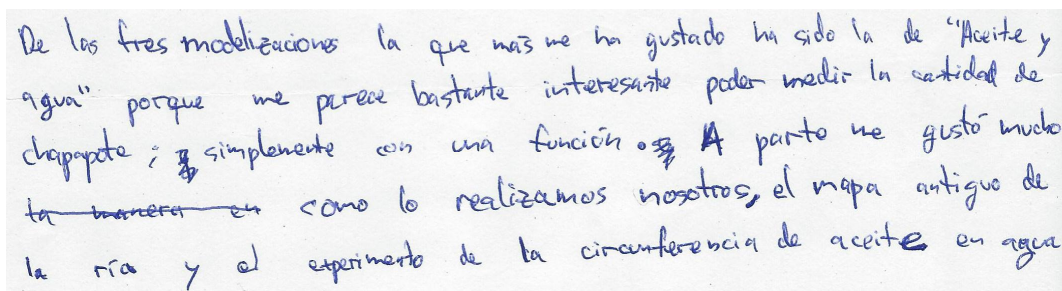 De las tres modelizaciones la que más me ha gustado ha sido la de "Aceite y
agua" porque me parece bastante interesante poder medir la cantidad de
chapapote; simplemente con una función. A parte me gustó mucho
la manera en como lo realizamos nosotros, el mapa antiguo de
la ría y el experimento de la circunferencia de aceite en agua